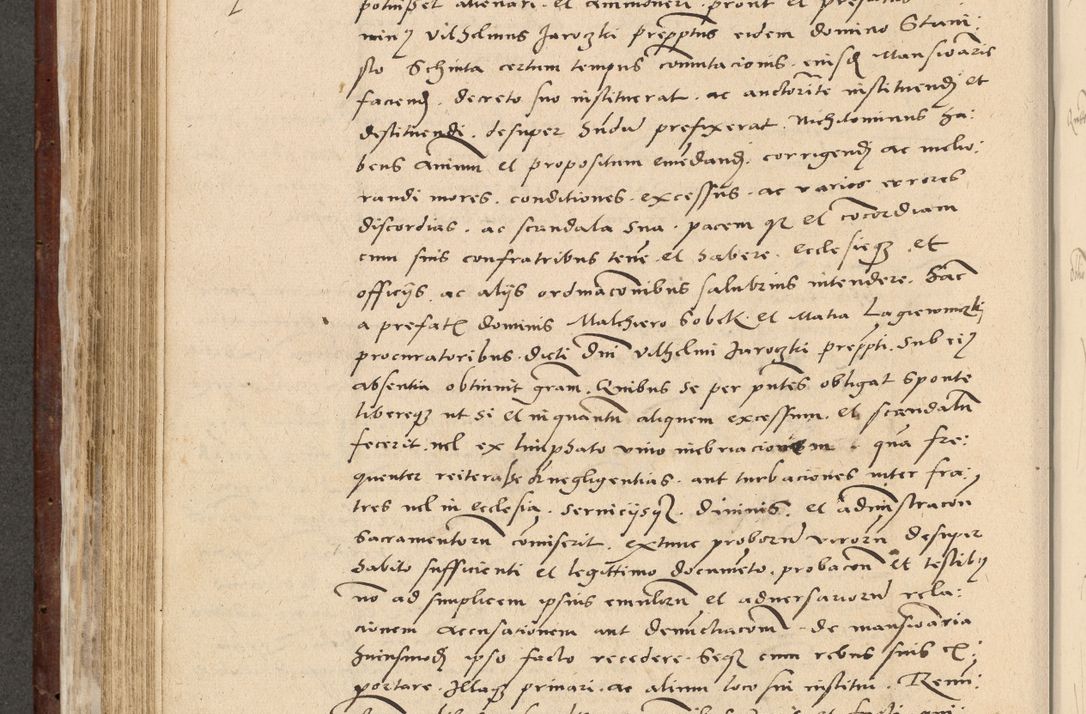 potuisset alienari et ammoneri prout et prefatus
min9 Vilhelmus Jaroczki prepptus eidem domino Stani:
slo Schinta certum tempus comutacionis eiusd Mansioarie
faciend decreto suo instituerat ac auctorite instituendi et
destituendi desuper Indu prefixerat Nichilominus ha:
bens animu et propositum emedandi corrigendi ac melio:
randi mores conditiones excessus ac varios errores
discordias ac scandala sua pacem qz et cocordiam
cum suis confratribus tene et habere Ecclesieqz et
officijs ac alijs ordinaconibus salubrius intendere hac
a prefat dominis Malchiero Sobek et Matia Lagiewniczki
procuratoribus dicti dni Vilhelmi Jaroczki preppti sub ei9
absentia obtinuit gram Quibus se per pntes obligat sponte
libereqz ut si et inquantu aliquem excessum et scandalu
fecerit vel ex limphato vino inebriacionem qua fre:
quenter reiterat negligentias aut turbaciones inter fra:
tres vel in Ecclesia Seruicijsqz diuinis et administracon
Sacramentoru comiserit extunc proboru viroru desuper
habito sufficienti et legittimo documeto probacon et testib9
no ad simplicem ipsius emuloru et aduersarioru rela:
cionem accusationem aut denuciacom de mansioaria
huiusmodi ipso facto recedere Seqz cum rebus suis ex:
portare Illaqz priuari ac alium loco sui institui Renu: